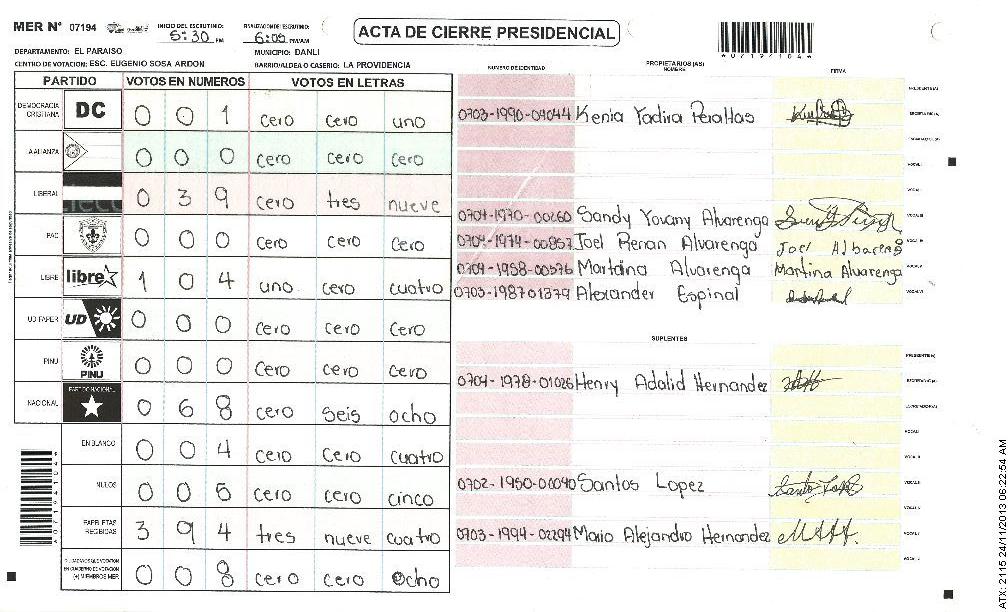 MER Nº 07194
INICIO DEL ESCRUTINIO: 5:30 PM
FINALIZACION DEL ESCRUTINIO: 6:09 PM/AM
ACTA DE CIERRE PRESIDENCIAL
DEPARTAMENTO: EL PARAISO
MUNICIPIO: DANLI
CENTRO DE VOTACION: ESC. EUGENIO SOSA ARDON
BARRIO/ALDEA O CASERIO: LA PROVIDENCIA
NUMERO DE IDENTIDAD PROPIETARIOS (AS) NOMBRE FIRMA
PARTIDO VOTOS EN NUMEROS VOTOS EN LETRAS
DEMOCRACIA CRISTIANA DC 0 0 1 cero cero uno
0 0 0 cero cero cero
LIBERAL 0 3 9 cero tres nueve
PAC 0 0 0 cero cero cero
LIBRE libre 1 0 4 uno cero cuatro
UD FAPER UD 0 0 0 cero cero cero
PINU PINU 0 0 0 cero cero cero
NACIONAL PARTIDO NACIONAL 0 6 8 cero seis ocho
EN BLANCO 0 0 4 cero cero cuatro
NULOS 0 0 5 cero cero cinco
PAPELETAS RECIBIDAS 3 9 4 tres nueve cuatro
0 0 8 cero cero ocho
0703-1990-04044 Kenia Yadira Perallas
0704-1970-00260 Sandy Yovany Alvarenga
0704-1974-00857 Joel Renan Alvarenga
0704-1958-00576 Martina Alvarenga Martina Alvarenga
0703-198701379 Alexander Espinal
SUPLENTES
0704-1978-01026 Henry Adalid Hernandez
0702-1950-00040 Santos Lopez
0703-1994-02294 Mario Alejandro Hernandez
ATX: 2115 24/11/2013 06:22:54 AM